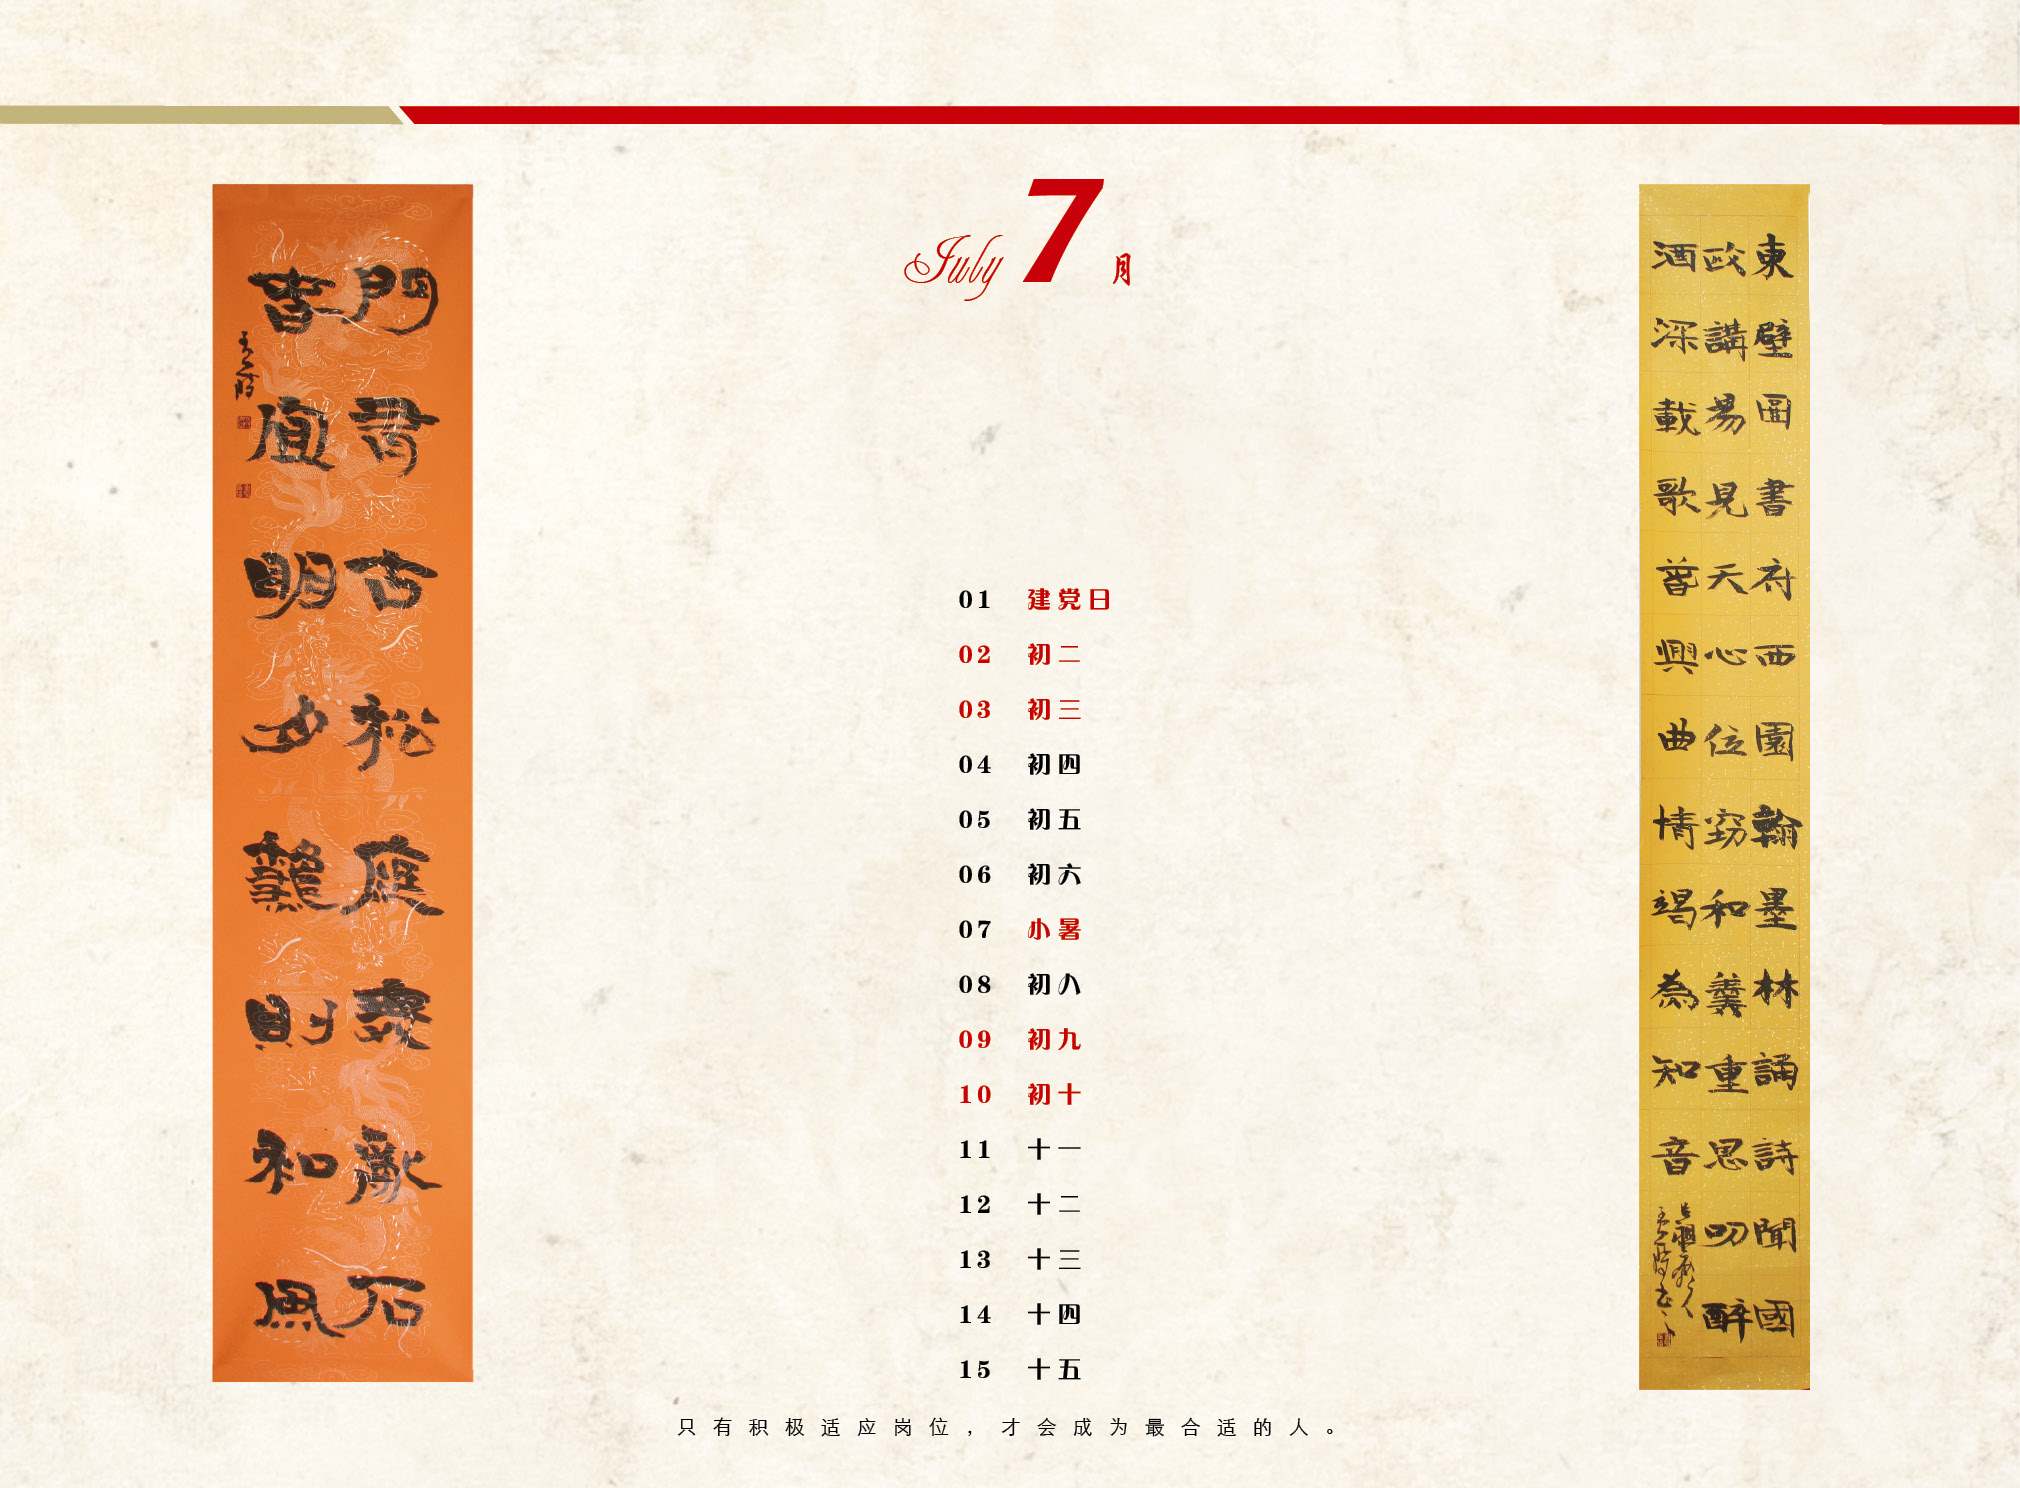 July 7月
門 古 松 庭 石
宜 明 則 和
01 建党日
02 初二
03 初三
04 初四
05 初五
06 初六
07 小暑
08 初八
09 初九
10 初十
11 十一
12 十二
13 十三
14 十四
15 十五
東壁圖書府西園翰墨林誦詩聞國
政講易見天心位竊和羹重恩叨醉
酒深載歌春興曲情竭為知音
只有积极适应岗位，才会成为最合适的人。